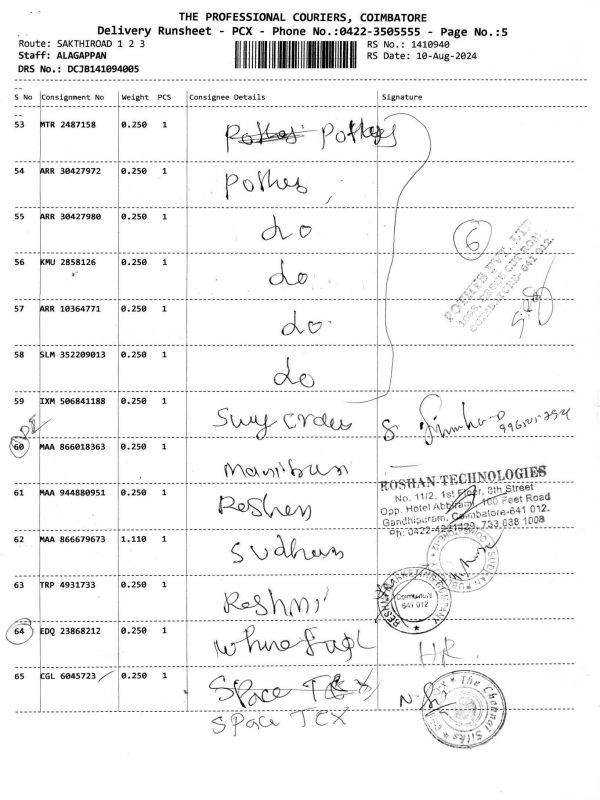 THE PROFESSIONAL COURIERS, COIMBATORE
Delivery Runsheet - PCX - Phone No.:0422-3505555 - Page No.:5
Route: SAKTHIROAD 1 2 3 RS No.: 1410940
Staff: ALAGAPPAN RS Date: 10-Aug-2024
DRS No.: DCJB141094005
--
S No Consignment No Weight PCS Consignee Details Signature
--
53 MTR 2487158 0.250 1 Pothys
54 ARR 30427972 0.250 1 Pothes
55 ARR 30427980 0.250 1 do
6
56 KMU 2858126 0.250 1 do
57 ARR 10364771 0.250 1 do
58 SLM 352209013 0.250 1 do
59 IXM 506841188 0.250 1 S.
60 MAA 866018363 0.250 1
61 MAA 944880951 0.250 1 Roshen
ROSHAN TECHNOLOGIES
No. 11/2, 1st Floor, 8th Street
Opp. Hotel Abbiram, 100 Feet Road
Gandhipuram, Coimbatore-641 012.
62 MAA 866679673 1.110 1 Sudhan
63 TRP 4931733 0.250 1 Reshmi
Coimbatore
641 012
64 EDQ 23868212 0.250 1 HR
65 CGL 6045723 0.250 1 Space TEX
The Chennai Silks
SPace TEX